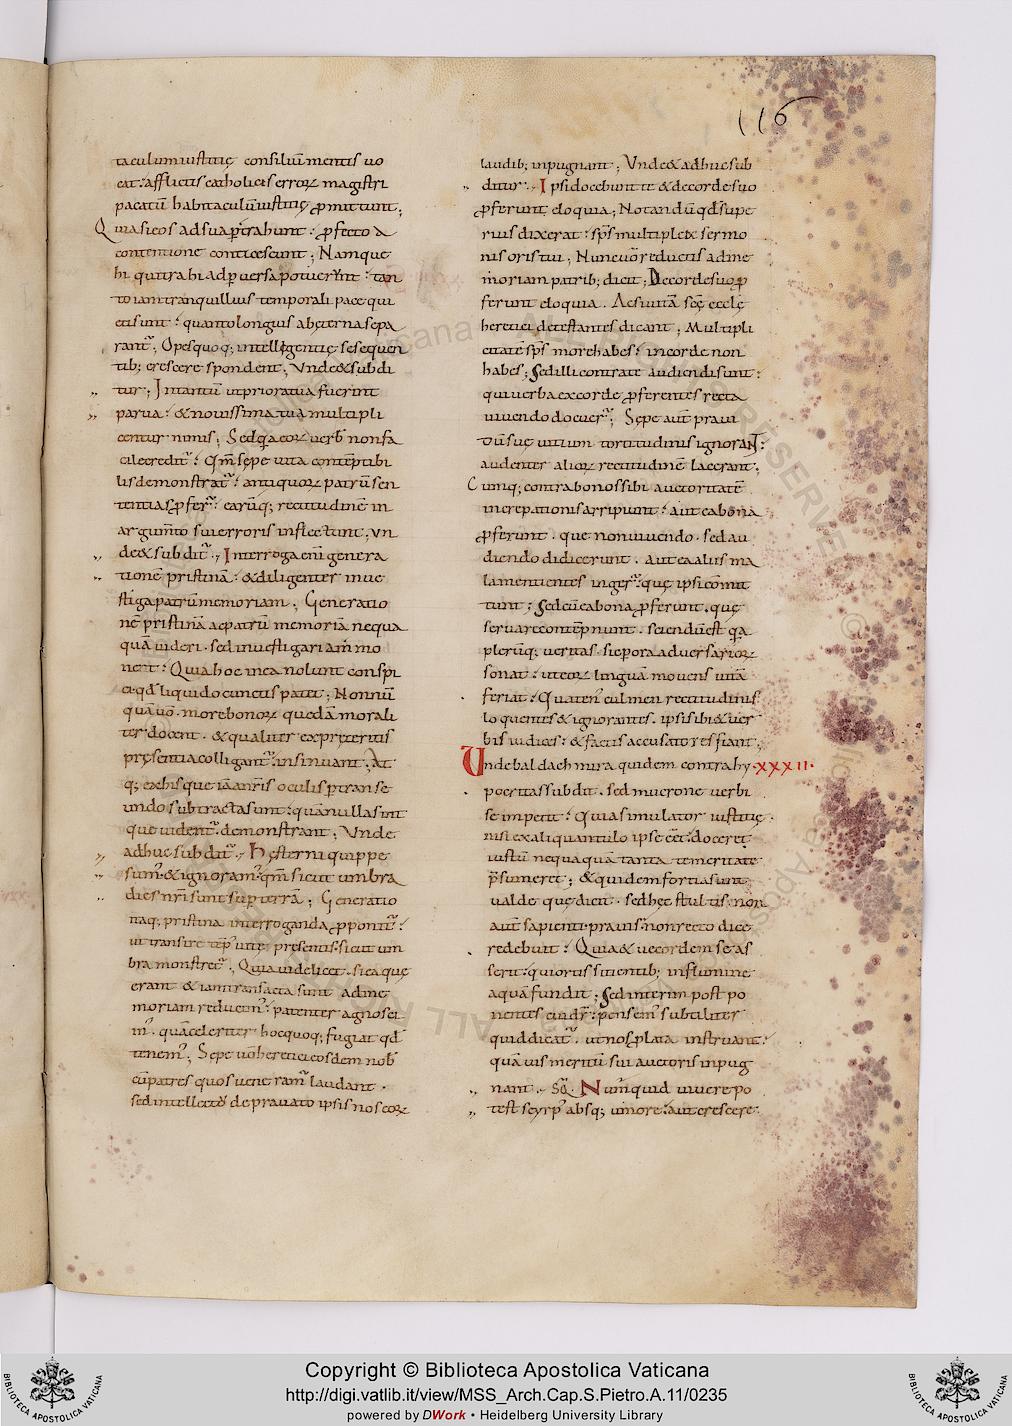 116
taculum iustitię consiluū mentis uo
cat: afflictis catholicis erroꝝ magistri
pacatū habitaculū iustitię ꝓmittunt;
Quia si eos ad sua ꝑtrahunt: ꝓfecto a
contentione conticescunt; Namque
hi qui trahi ad ꝑuersa potuerunt: tan
to iam tranquillius temporali pace qui
eti sunt: quanto longius ab ęterna sepa
rantˀ; Opesquoq; intellegentię se sequen
tib; crescere spondent; Unde & subdi
tur; Intantū ut priora tua fuerint
parua: & nouissima tua multipli
centur nimis; Sed quia eoꝝ uerb non fa
cile creditˀ: Qm̄ sepe uita contēptibi
lis demonstratˀ: antiquoꝝ patrū sen
tentias ꝓferˀ: earūq; rectitudinē in
argumto sui erroris inflectunt; Un
de & subditˀ; Interroga eni genera
tionē pristinā: & diligenter inue
stiga patrū memoriam; Generatio
nē pristinā ac patrū memoriā nequa
quā uideri. sed inuestigari am̄mo
nent: Quia hoc in ea nolunt conspi
ci. qđ liquido cunctis patet; Nonnū
quā uō. more bonoꝝ quedā morali
ter docent. & qualiter ex pręteritis
pręsentia colligantˀ: insinuant; At
q; ex his que iā a nr̄is oculis ꝑtranse
undo subtracta sunt: quā nulla sint
que uidentˀ. demonstrant; Unde
adhuc subditˀ; Hesterni quippe
sumˀ. & ignoramˀ. qm̄ sicut umbra
dies nr̄i sunt suꝑ terrā; Generatio
itaq; pristina interroganda ꝓponitˀ:
ut transire tēpˀ uitę pręsentis: sicut um
bra monstretˀ; Quia uidelicet. si ea quę
erant & iam transacta sunt ad me
moriam reducimˀ: patenter agnosci
mˀ. quā celeriter hoc quoq; fugiat qđ
tenemˀ; Sepe uō heretici eosdem nob
cū patres quos ueneramˀ laudant.
sed intellectō deprauato ipsis nos eoꝝ
laudib; inpugnant; Unde & adhuc sub
ditur. Ipsi docebunt te & de corde suo
ꝓferunt eloquia; Notandū qđ supe
rius dixerat: sp̄s multiplex sermo
nis oris tui; Nunc uō reductis ad me
moriam patrib; dicit; De corde suo ꝓ
ferunt eloquia. Ac si uitā scę ecclę
heretici detestantes dicant; Multipli
citatē sp̄s more habes: in corde non
habes; Sed illi contra te audiendi sunt:
qui uerba ex corde ꝓferentes recta
uiuendo docuerˀ; Sepe aut praui
dū suę uitium tortitudinis ignorant:
audenter alioꝝ rectitudinē lacerant;
Cumq; contra bonos sibi auctoritatē
increpationis arripiunt: aut ea bona
ꝓferunt. que non uiuendo. sed au
diendo didicerunt. aut ea aliis ma
la mentientes ingerˀ: quę ipsi comit
tunt; Sed cū ea bona ꝓferunt. quę
seruare contēpnunt. sciendū est qa
plerūq; ueritas. sic per ora aduersarioꝝ
sonat: ut eoꝝ linguā mouens uitā
feriat: Quatenˀ culmen rectitudinis
loquentes & ignorantes. ipsi sibi & uer
bis iudices: & factis accusatores fiant;
Unde baldach mira quidem contra hy. XXXII.
pocritas subdit. sed mucrone uerbi
se impetit: Quia simulator iustitię.
nisi ex aliquantulo ipse eēt: docere
iustū nequaquā tanta temeritate
p̄sumeret; & quidem fortia sunt
ualde que dicit. sed hęc stultis: non
aut sapienti. prauis: non recto dice
re debuit: Quia & uecordem se as
serit: qui ortis sitientib; in flumine
aquā fundit; Sed interim post po
nentes cui drˀ: pensemˀ subtiliter
quid dicatˀ. ut nos ꝑlata instruant:
quā uis meritū sui auctoris inpug
nant. Sqˀ. Numquid uiuere po
test scyrpˀ absq; umore: aut crescere
Copyright © Biblioteca Apostolica Vaticana
http://digi.vatlib.it/view/MSS_Arch.Cap.S.Pietro.A.11/0235
powered by DWork • Heidelberg University Library